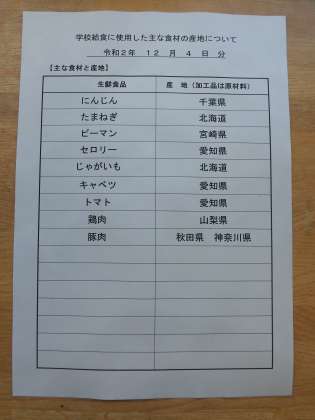 学校給食に使用した主な食材の産地について
令和2年 12 月 4 日 分
【主な食材と産地】
生鮮食品 産 地（加工品は原材料）
にんじん 千葉県
たまねぎ 北海道
ピーマン 宮崎県
セロリー 愛知県
じゃがいも 北海道
キャベツ 愛知県
トマト 愛知県
鶏肉 山梨県
豚肉 秋田県 神奈川県